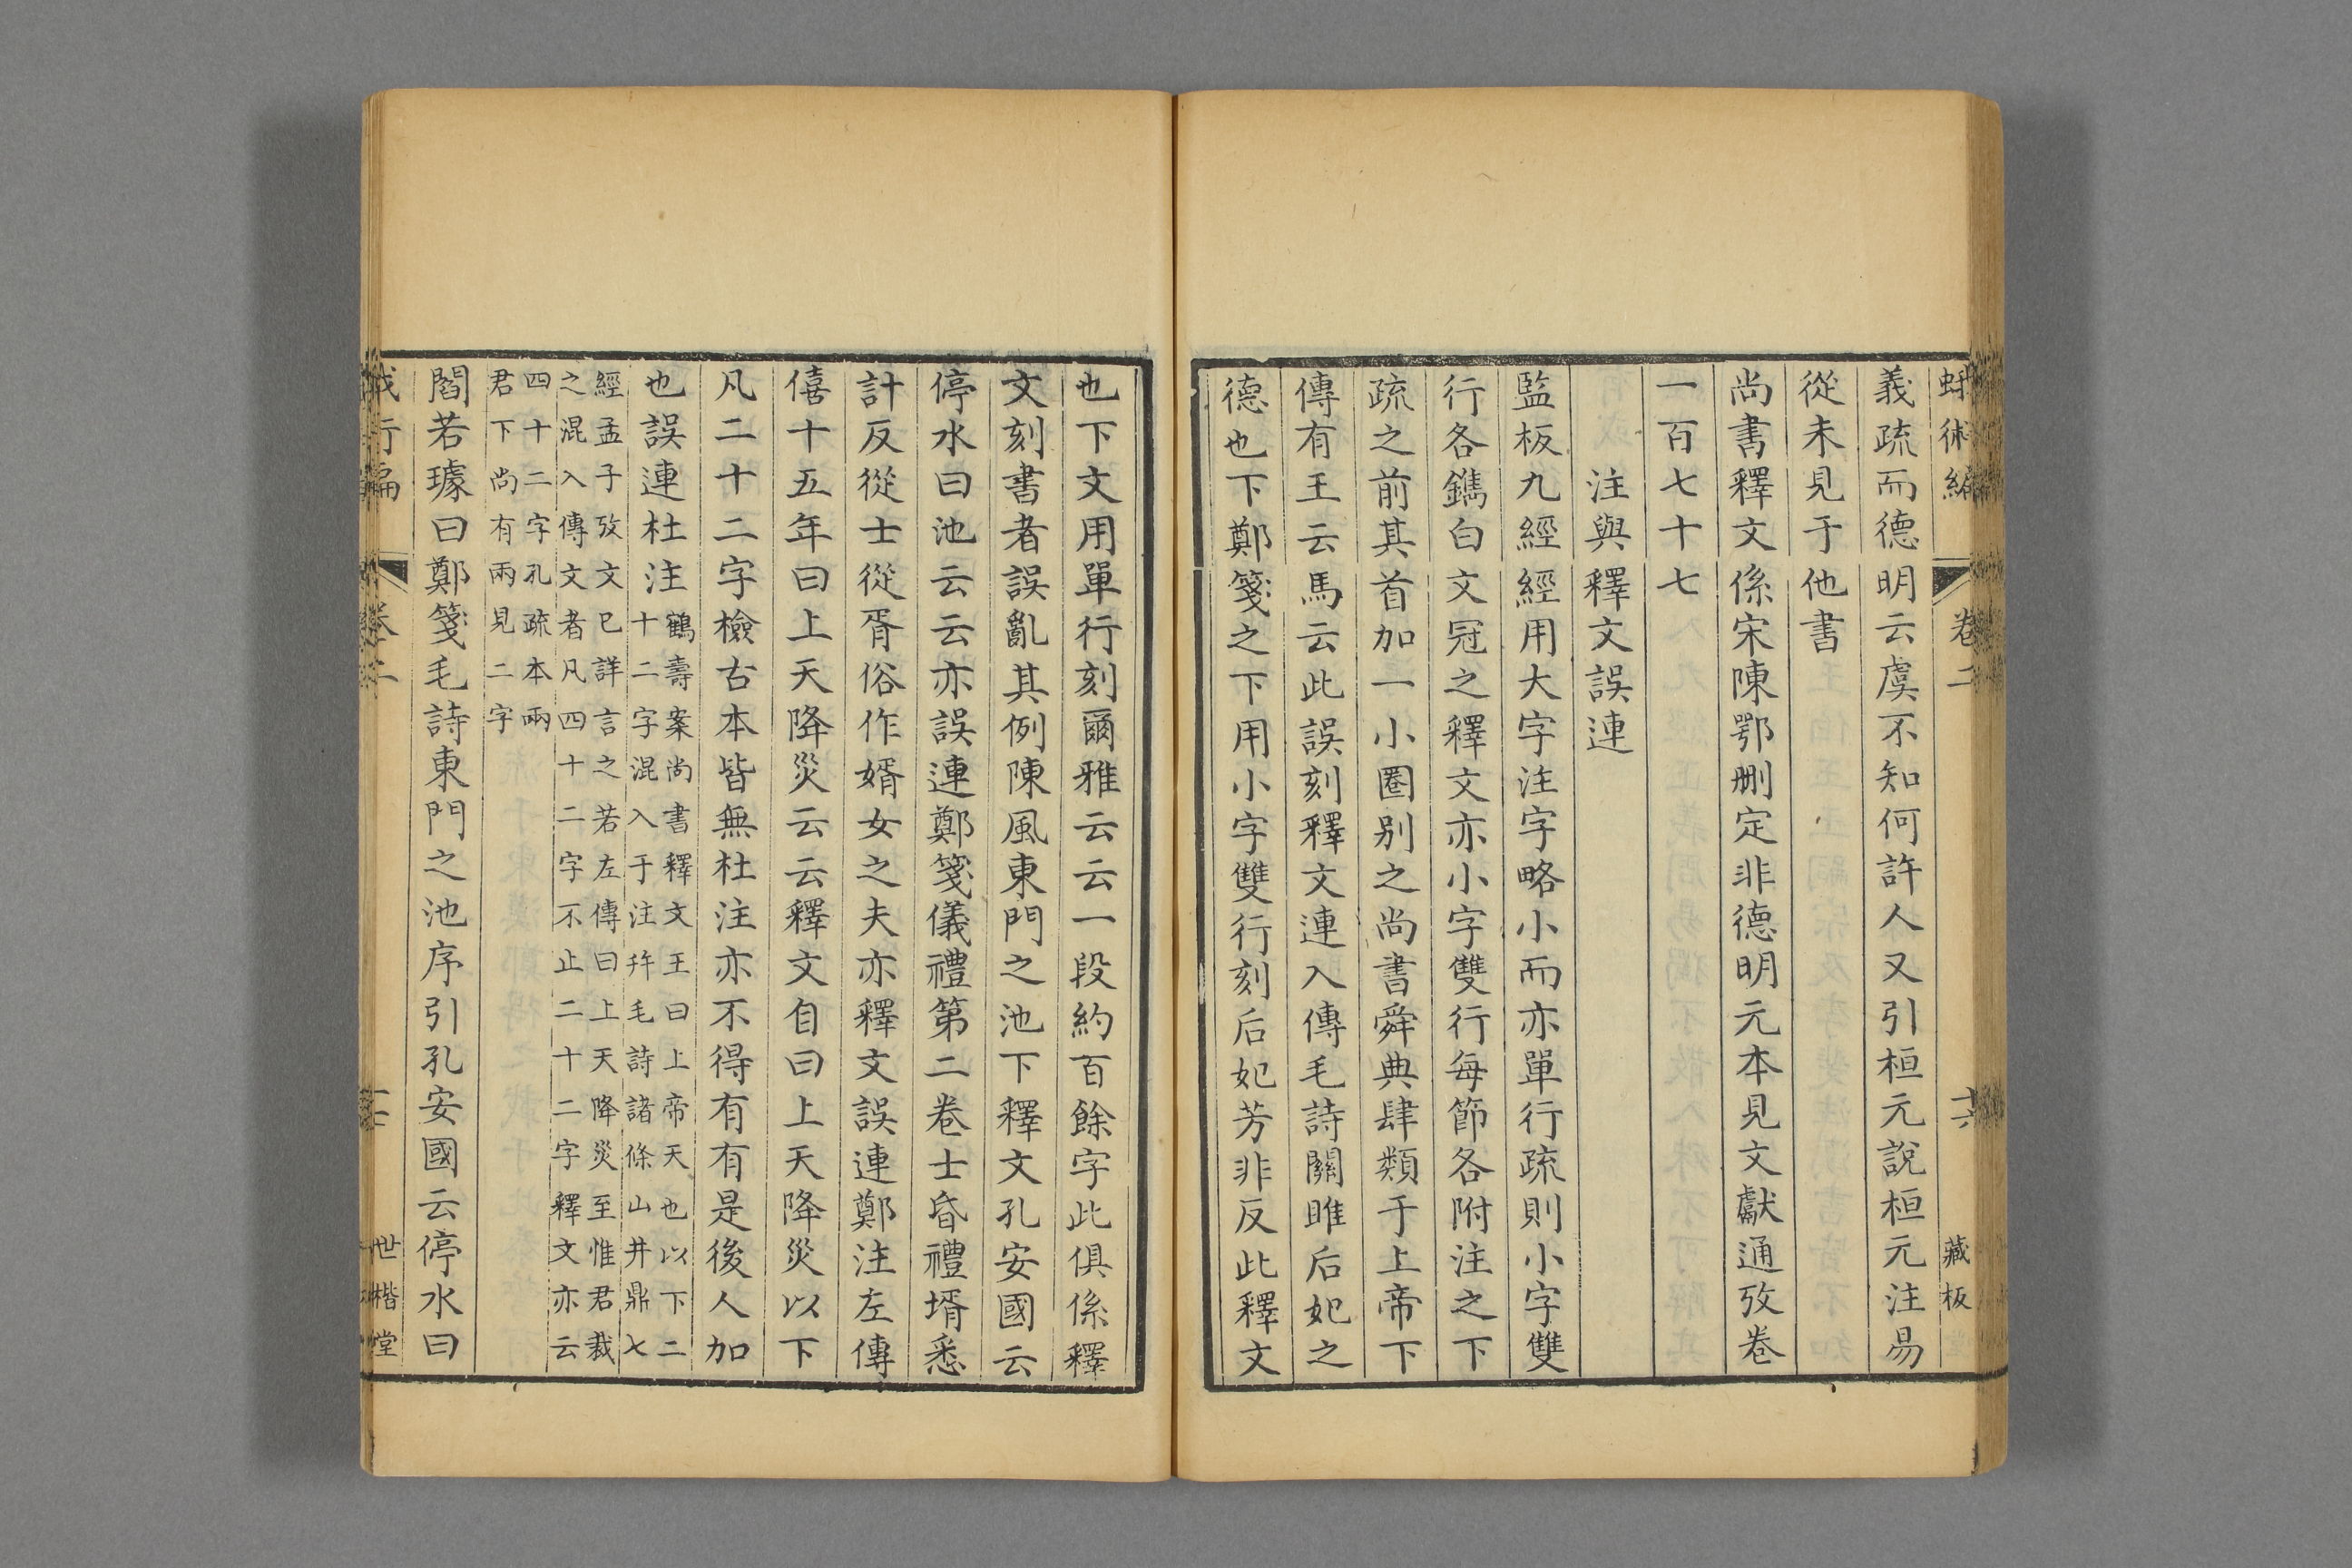 蛾術編 卷二 十六 藏板
義疏而德明云虞不知何許人又引桓元說桓元注易
從未見于他書
尚書釋文係宋陳鄂刪定非德明元本見文獻通攷卷
一百七十七
注與釋文誤連
監板九經經用大字注字略小而亦單行疏則小字雙
行各鐫白文冠之釋文亦小字雙行每節各附注之下
疏之前其首加一小圈別之尚書舜典肆類于上帝下
傳有王云馬云此誤刻釋文連入傳毛詩關雎后妃之
德也下鄭箋之下用小字雙行刻后妃芳非反此釋文
也下文用單行刻爾雅云云一段約百餘字此俱係釋
文刻書者誤亂其例陳風東門之池下釋文孔安國云
停水曰池云云亦誤連鄭箋儀禮第二卷士昏禮壻悉
計反從士從胥俗作婿女之夫亦釋文誤連鄭注左傳
僖十五年曰上天降災云云釋文自曰上天降災以下
凡二十二字檢古本皆無杜注亦不得有有是後人加
也誤連杜注
鶴壽案尚書釋文王曰上帝天也以下二
十二字混入于注幷毛詩諸條山井鼎七
經孟子攷文已詳言之若左傳曰上天降災至惟君裁
之混入傳文者凡四十二字不止二十二字釋文亦云
四十二字孔疏本兩
君下尚有兩見二字
閻若璩曰鄭箋毛詩東門之池序引孔安國云停水曰
卷二 世楷堂